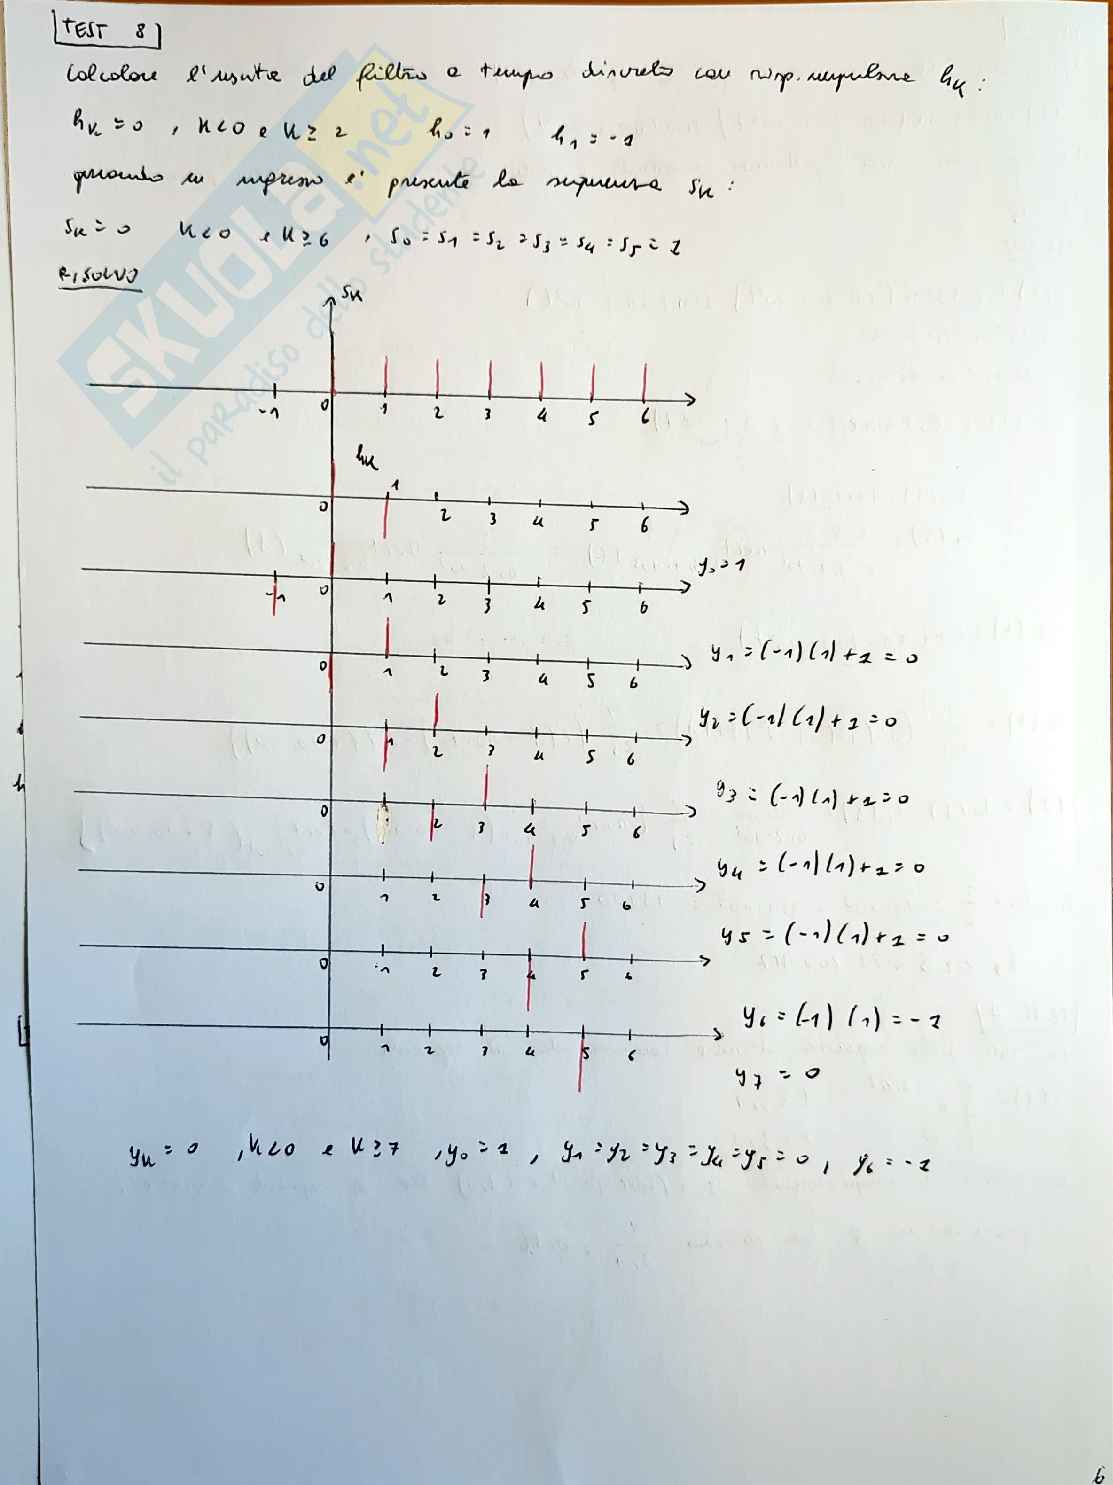 TEST 8
Calcolare l'uscita del filtro a tempo discreto con risp. impulsiva hK :
hK = 0 , K<0 e K ≥ 2 h0 = 1 h1 = -1
quando in ingresso e' presente la sequenza SK :
SK = 0 K<0 e K ≥ 6 , S0 = S1 = S2 = S3 = S4 = S5 = 1
RISOLVO
SK
-1 0 1 2 3 4 5 6
hK
1
0 2 3 4 5 6
y0 = 1
-1 0 1 2 3 4 5 6
y1 = (-1)(1)+1 = 0
0 1 2 3 4 5 6
y2 = (-1)(1)+1 = 0
0 1 2 3 4 5 6
y3 = (-1)(1)+1 = 0
0 2 3 4 5 6
y4 = (-1)(1)+1 = 0
0 1 2 3 4 5 6
y5 = (-1)(1)+1 = 0
0 1 2 3 4 5 6
y6 = (-1) (1) = -1
0 1 2 3 4 5 6
y7 = 0
yK = 0 , K<0 e K ≥ 7 , y0 = 1 , y1 = y2 = y3 = y4 = y5 = 0 , y6 = -1
6
SKUOLA.net
il paradiso dello studente